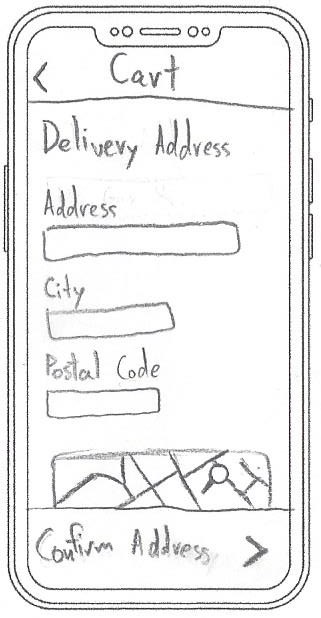 Cart
Delivery Address
Address
City
Postal Code
Confirm Address